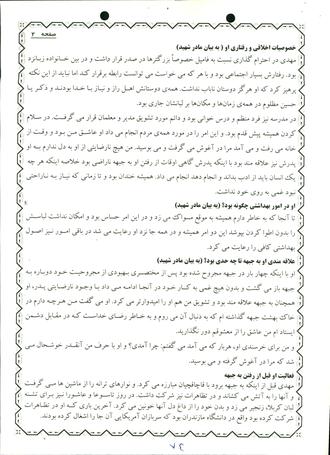 صفحه ۲
خصوصیات اخلاقی و رفتاری او ( به بیان مادر شهید)
مهدی در احترام گذاری نسبت به فامیل خصوصاً بزرگترها در صدر قرار داشت و در بین خانواده زبانزد
بود. رفتارش بسیار اجتماعی بود و با هر که می خواست می توانست رابطه برقرار کند اما نباید از این نکته
پرهیز کرد که او هرگز دوستان ناباب نداشت. همه ی دوستانش اهل راز و نیاز با خدا بودند و ذکر یا
حسین مظلوم در همه‌ی زمان‌ها و مکان‌ها بر لبانشان جاری بود.
در مدرسه نیز فرد منظم و درس خوانی بود و دائم مورد تشویق مدیر و معلمان قرار می گرفت. در سلام
کردن همیشه پیش قدم بود. و این امر را در مورد همه‌ی مردم انجام می داد و عاشق من بود و وقت از
خانه می رفت و می آمد مرا در آغوش می گرفت و می بوسید. من هیچ نارضایتی از او به دل ندارم به او
پدرش نیز علاقه مند بود با اینکه پدرش گاهی اوقات از رفتن او به جبهه ناراضی بود خلاصه اینکه هر چه
یک انسان باید از ادب بداند و انجام دهد انجام می داد. همیشه خندان بود و تا زمانی که نیاز به ناراحتی
نبود غمی به روی خود نداشت.
او در امور بهداشتی چگونه بود؟ (به بیان مادر شهید)
تا آنجا که به خاطر دارم همیشه به موقع مسواک می زد و در این امر حساس بود و امکان نداشت لباسش
را بدون اطو کردن بپوشد این دو امر همیشه و در همه جا نزد او رعایت می شد در باقی امور نیز اصول
بهداشتی کافی را رعایت می کرد.
علاقه مندی او به جبهه تا چه حدی بود؟ (به بیان مادر شهید)
او با اینکه چهار بار در جبهه مجروح شده بود پس از مختصری بهبودی از مجروحیت خود دوباره به
جبهه باز می گشت و بدون هیچ غمی به کار خود در آنجا ادامه می داد با وجود نارضایتی پدر، او
همچنان به جبهه علاقه مند بود و تشویق من هم او را امیدوارتر می کرد. او می گفت من هرچه دارم در
خاک بهشت جبهه گذاشته ام که به دنبال آن می روم و به خاطر رضای خداست که در مقابل دشمن
ایستاد ام من عاشق ام را از معشوقم دور نگذارید.
و من برای خرمندی او، هربار که می آمد می گفتم: چرا آمدی؟ و او با حرف من آنقدر خوشحال می
شد که مرا در آغوش گرفته و می بوسید.
فعالیت او قبل از رفتن به جبهه
مهدی قبل از اینکه به جبهه برود با قاچاقچیان مبارزه می کرد. و نوارهای ترانه را از ماشین ها می گرفت
و آنها را به آتش می کشاند و در تظاهرات نیز شرکت داشت. در روز تاسوعا و عاشورا نیز برای تشنه
لبان کربلا، زنجیر می زد و بدن خود را از داغ دل آنها خونین می کرد. آخرین باری که او در تظاهرات
شرکت کرده بود واقع در دانشگاه مازندران بود که سربازان آمریکایی آن جا را اشغال کرده بودند.